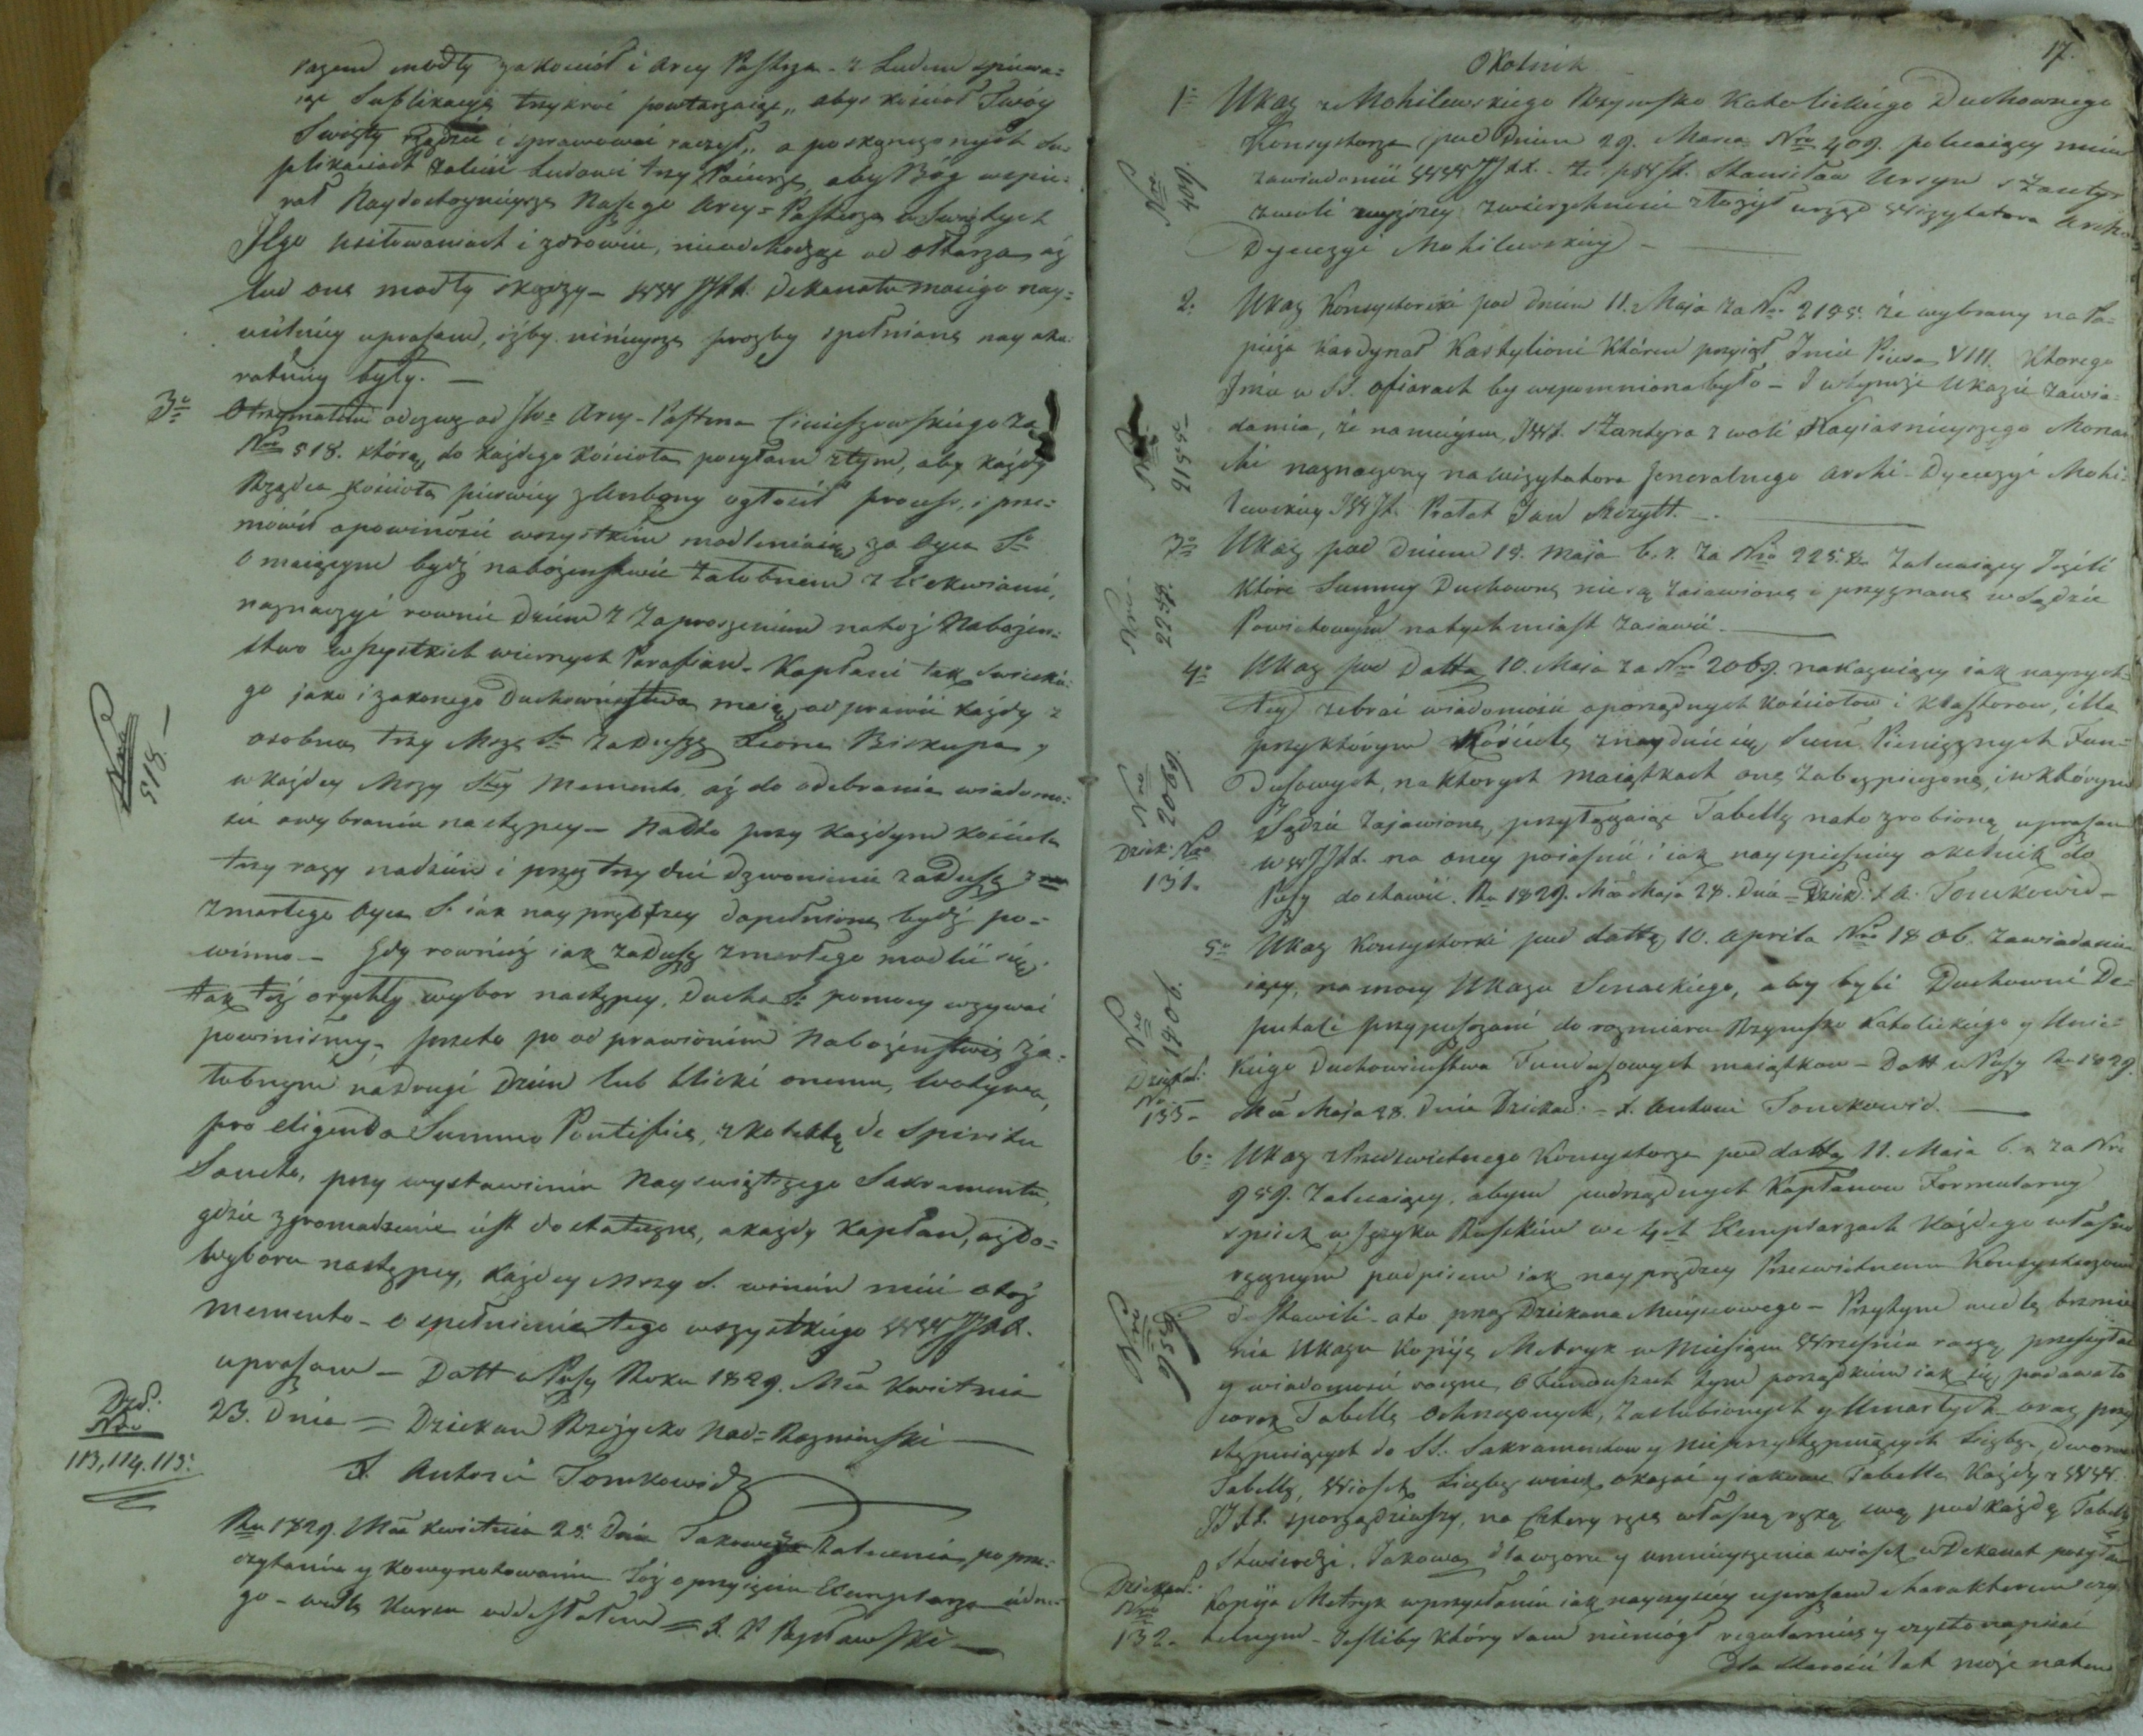 razem modły za kościół i Arcy Pasterza z Ludem śpiewa=
iąc Suplikacyą trzykroć powtarzaiąc „abyś kościoł Swóy
Swięty rządzić i sprawować raczył„ a po skączonych Su
plikaciach zalicić Ludowi trzy Pacierze, aby Bóg wspie=
rał Naydostoynieysze Naszego Arcy=Pasterza w Swiętych
Jego usiłowaniach i zdrowiu, nieodchodząc od ołtarza aż
lud one modły skączy – WWJJXX. Dekanatu moiego nay=
usilniey upraszam, iżby ninieysze prozby spełniane nay aku=
ratniey były. —
3o Otrzymałem odezwę od JWo Arcy-Pasterza Cieciszowskiego za
Nro 518. którą do każdego kościoła posyłam z tym, aby każdy
Rządca kościoła pierwiey z Ambony ogłosił process, i prze=
mówił o powinośći wszystkim modlenia się za Oyca So
o maiącym bydź nabożenstwie Żałobnem z Exekwiami,
naznaczyć rownie Dzień z Zaproszeniem na toż Nabożen=
stwo wszystkich wiernych Parafian. Kapłani tak swieckie
go jako i zakonego Duchowieństwa maią odprawić każdy z
osobna trzy Msze Se za Duszę Leona Biskupa, y
w każdey Mszy Stey Memento, aż do odebrania wiadomo=
sći o wybraniu następcy – Nadto przy każdym kościele
trzy razy nadzień i przez trzy dni dzwonienie za Duszę
zmarłego Oyca S. iak nay prędzey dopełnione bydź po=
winno – Gdy rownież iak za Duszę zmarłego modlić się
tak też o rychły wybor następcy, Ducha So pomocy wzywać
powinismy, przeto po odprawionem Nabożenstwie Ża=
łobnym na Drugi Dzień lub bliski onemu, Wotywa,
pro eligendo Summo Pontifice, z kolektą de Spiritu
Sancto, przy wystawieniu Nayswiątszego Sakramentu,
gdzie zgromadzenie iest dostateczne, a każdy Kapłan, aż do=
wyboru następcy, każdey Mszy S. winien mieć otoż
memento – o spełnienie tego wszystkiego WWJJXX.
upraszam – Datt w Puszy Roku 1829. Mca Kwietnia
23. Dnia = Dziekan Rzeżycko Nad=
X. Antoni Tomkowid
Ru 1829. Mca Kwietnia 25. Dnia Takowe Zalecenia po prze=
czytaniu y kowynotowaniu Toż o przyięciu Exemplarza iedne=
go – wedle Kursu oddesłałem = X. P
Nro
518. —
Dzd.
Nro
113, 114. 115.
17.
Okolnik
1o Ukaz z Mohilewskiego Rzymsko Katolickiego Duchownego
Konsystorza pod Dniem 29. Marca Nro 409. polecaiący mnie
zawiadomić WWJJXX. – że JWJX. Stanisław Ursyn
z woli wyższey zwierzchności złożył urząd Wizytatora Archi
Dyecezyi Mohilewskiey —
2. Ukaz Konsystorski pod Dniem 11. Maja za Nro 2155. że wybrany na Pa=
pieża Kardynał Kastylioni Któren przyiął Imie Piusa VIII. Ktorego
Imie w SS. ofiarach by wspomniona było – I w tymże Ukazie zawia=
damia, że na mieyscu, JWX. z woli Nayiasnieyszego Monar
chi naznaczony na wizytatora Jeneralnego Archi-Dyecezyi Mohi=
lewskiey JWJX. Prałat Jan Szczytt. —
3o Ukaz pod Dniem 15. Maja b.r. za Nro 2258. Zalecaiący Jeżeli
które Summy Duchowne nie są zaiawione i przyznane w Sądzie
Powiatowym natychmiast zaiawić. —
4o Ukaz pod Dattą 10. Maja za Nro 2069. nakazuiący iak nayrych=
ley zebrać wiadomośći o porządnych Kościołow i Klasztorow, ille
przy którym Kościele znayduie się Sum Pieniężnych Fun=
duszowych, na ktorych Maiątkach one zabezpieczone, i w którym
Sądzie zajawione, przyłączaiąc Tabellę na to zrobioną upraszam
WWJJXX. na oney poiasnić i iak nayspieszniey okolnik do
Puszy dostawić. Ru 1829. Mca Maja 28. Dnia = Dziek. X. A. Tomkowid –
5o Ukaz Konsystorski pod dattą 10. Aprila Nro 1806. zawiadamia
iący, na mocy Ukazu Senackiego, aby byli Duchowni De=
putaci przypuszczani do rozmiaru Rzymsko Katolickiego y Unic=
kiego Duchowienstwa Funduszowych maiątkow – Datt w Puszy Ru 1829.
Mca Maja 28. Dnia Dziekan: – X. Antoni Tomkowid. —
6o Ukaz z Przeswietnego Konsystorza pod dattą 11. Maia b.r. za Nro
959. Zalecaiący, abym podrządnych Kapłanow Formularny
spisek w Języku Ruskiem we 4ch Exemplarzach każdego własno
ręcznym podpisem iak nayprędzey Przeswietnemu Konsystorzowi
dostawili ato przez Dziekana Mieyscowego – Przytym wedle brzmie
nia Ukazu kopiję Metryk w Miesiącu Wrzesniu raczą przesyłać
y wiadomość roczne o Funduszach tym porządkiem iak się podawało
coroz Tabellę Ochrzczonych, zaslubionych y Umarłych oraz przy
stępuiących do SS. Sakramentow y nieprzystępuiących Liczbę, dwora
Tabellę, Wiosek Liczbę wiosek okazać y iakowe Tabelle każdy z WW.
JJXX. sporządziwszy, na Cztery ręce własną ręką swą pod każdą Tabellą
stwierdzi. Takową dla wzoru y umnieyszenia wiosek w Dekanat posyłam
kopija Metryk w przysłaniu iak nayczysciey upraszam charakterem czy
telnym – Jesliby który sam niemógł regularnie y czysto napisać
Dla starośći lat może na tem
Nro
409.
Nro
2155
Nro
2258.
Nro
2069.
Dziek: Nro
131.
Nro
1806.
Dziekań:
No
135–
Nro
959
Dziekań:
Nro
132.